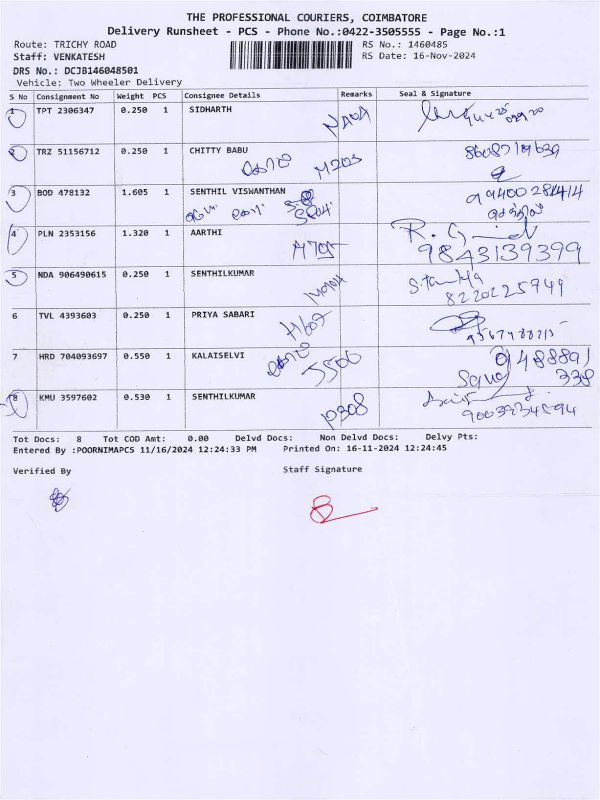 THE PROFESSIONAL COURIERS, COIMBATORE
Delivery Runsheet - PCS - Phone No.:0422-3505555 - Page No.:1
Route: TRICHY ROAD RS No.: 1460485
Staff: VENKATESH RS Date: 16-Nov-2024
DRS No.: DCJB146048501
Vehicle: Two Wheeler Delivery
S No Consignment No Weight PCS Consignee Details Remarks Seal & Signature
1 TPT 2306347 0.250 1 SIDHARTH
2 TRZ 51156712 0.250 1 CHITTY BABU
M203
3 BOD 478132 1.605 1 SENTHIL VISWANTHAN
9940028414
செந்தில்
4 PLN 2353156 1.320 1 AARTHI
M705 9843139399
5 NDA 906490615 0.250 1 SENTHILKUMAR
8220225749
6 TVL 4393603 0.250 1 PRIYA SABARI
H607
7 HRD 704093697 0.550 1 KALAISELVI
J506 338
8 KMU 3597602 0.530 1 SENTHILKUMAR
P308
Tot Docs: 8 Tot COD Amt: 0.00 Delvd Docs: Non Delvd Docs: Delvy Pts:
Entered By :POORNIMAPCS 11/16/2024 12:24:33 PM Printed On: 16-11-2024 12:24:45
Verified By Staff Signature